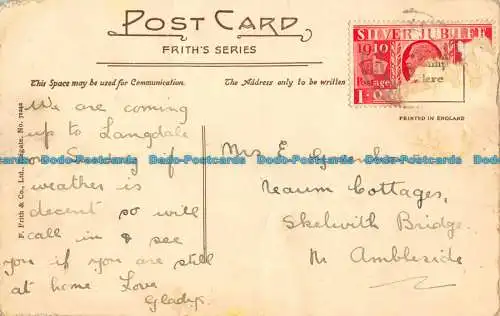 POST CARD
FRITH'S SERIES
This Space may be used for Communication.
The Address only to be written
SILVER JUBILEE
1910
Postage
1D
here
PRINTED IN ENGLAND
F. Frith & Co., Ltd., Reigate. No.
We are coming
up to Langdale
on Sunday if
weather is
decent so will
call in & see
you if you are still
at home Love
Gladys.
Mrs E.
Cottages,
Skelwith Bridge
Nr. Ambleside
Dado-Postcards Dado-Postcards Dado-Postcards Dado-Postcards